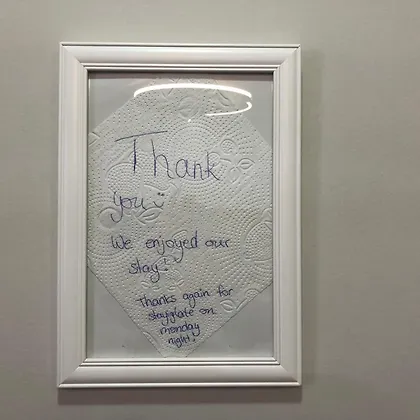 Thank
you :)
We enjoyed our
stay!
Thanks again for
staying late on
monday
night!